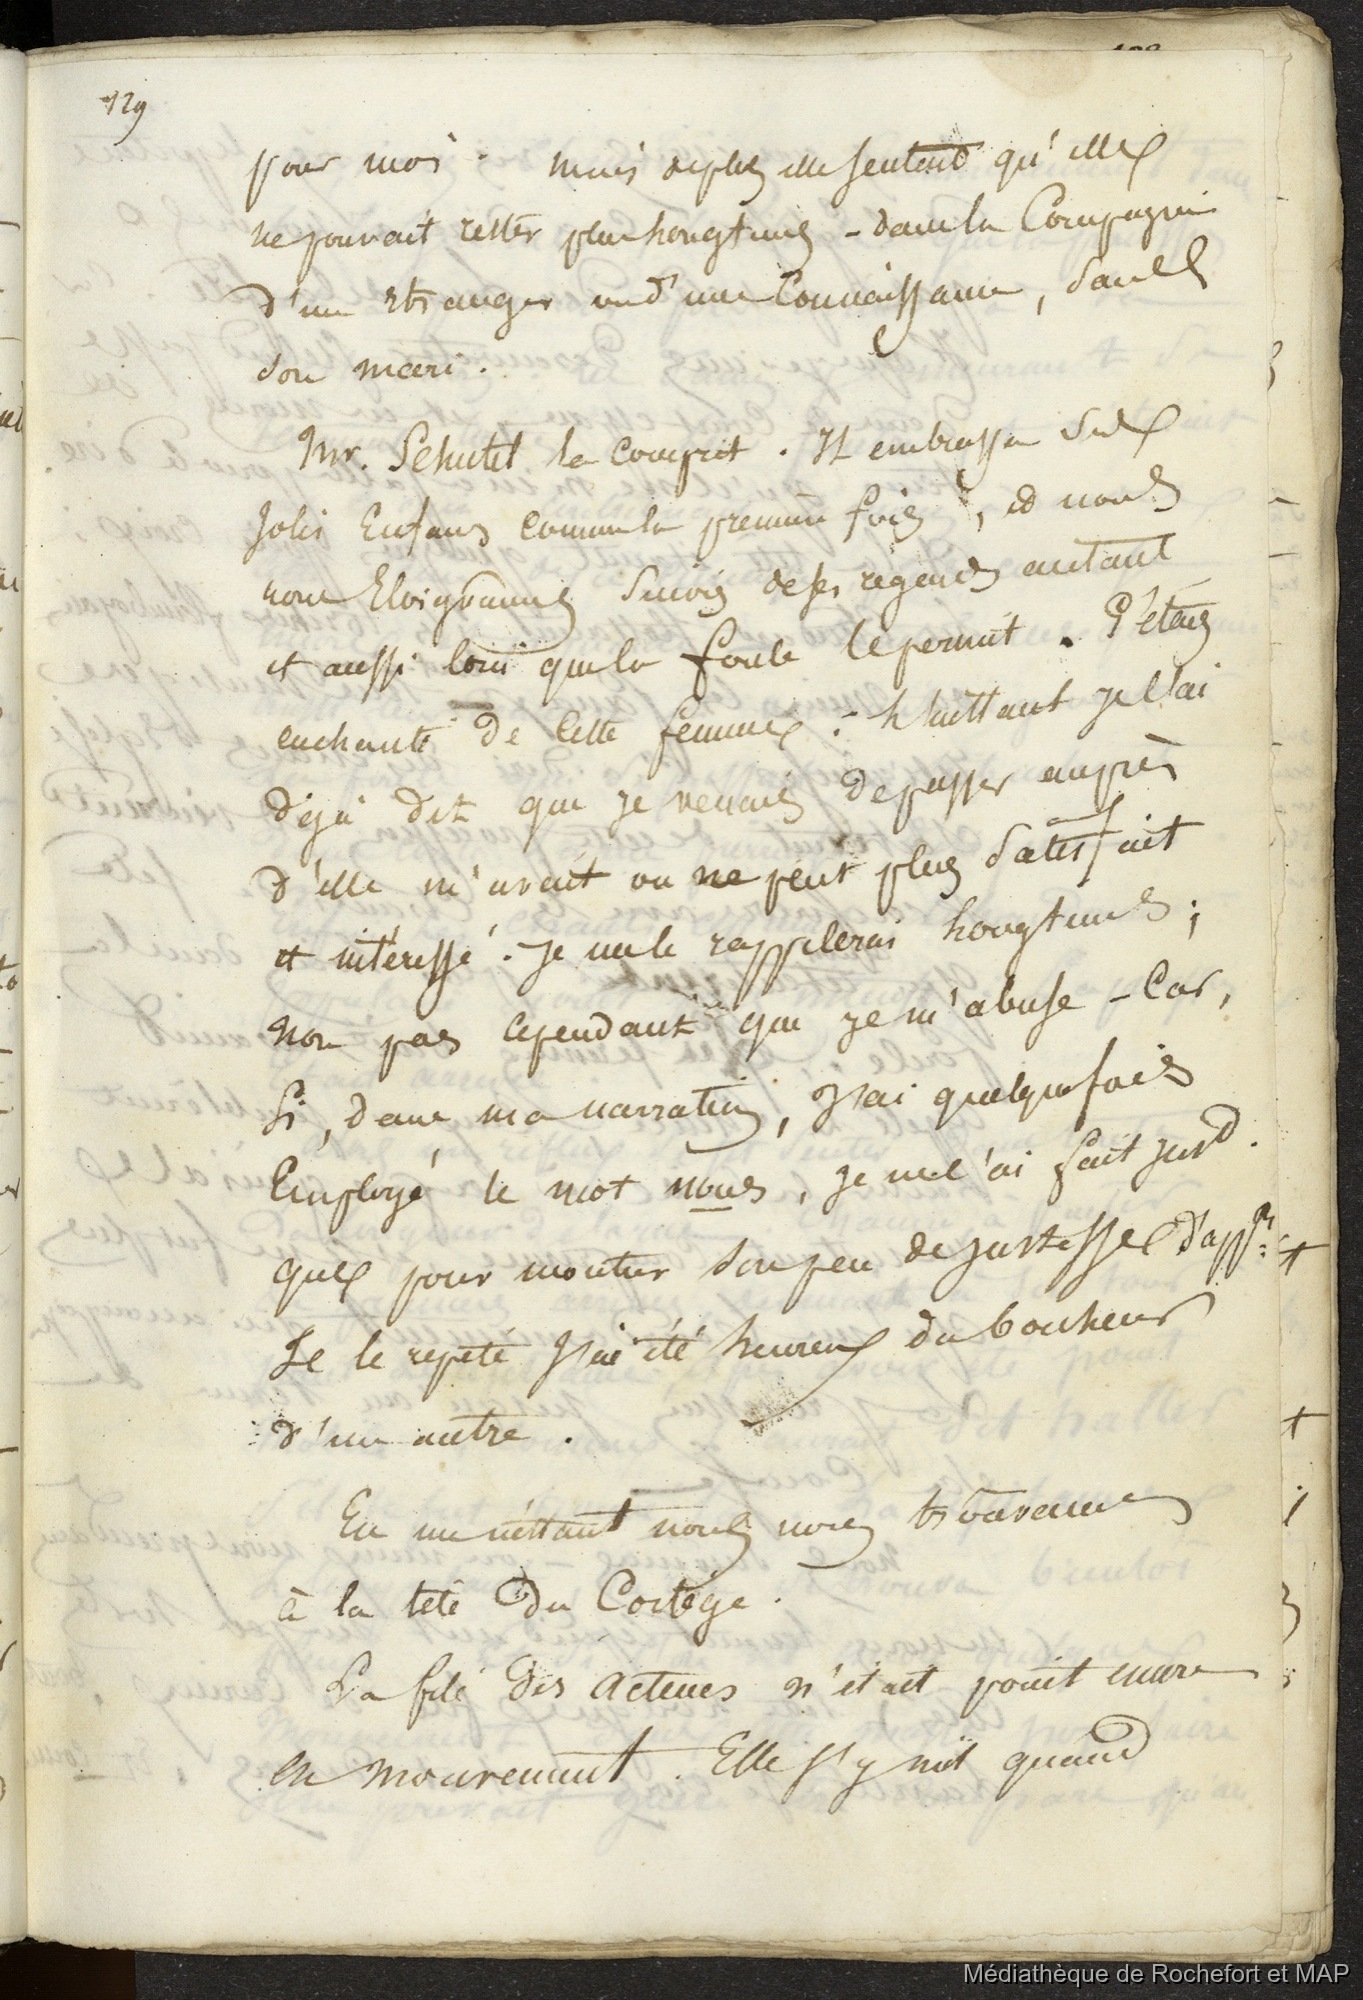 129
pour moi. mais deplus elle sentait qu'elle
ne pouvait rester plus longtems - dans la Compagnie
d'un étranger ou d'une Connaissance, sans
son mari.
Mr. Schutel le comprit. Il embrassa Ses
Jolis Enfans comme la premiere fois, et nous
nous Eloignames Suivis de ses regards autant
et aussi loin que la foule le permit. J'étais
enchanté de cette femme: L'instant je l'ai
déjà dit que je venais de passer auprès
d'elle m'avait on ne peut plus satisfait
et intéressé. Je me le rappelerai longtems;
non pas cependant que je m'abuse - Car,
Si, dans ma narration, J'ai quelquefois
Employé le mot nous, je ne l'ai fait
que pour montrer son peu de justesse
Je le repete J'ai été heureux du bonheur
d'un autre.
En un instant nous nous trouvames
à la tête du Cortège.
La file des acteurs n'était point encore
en mouvement. Elle s'y mit quand
Médiathèque de Rochefort et MAP